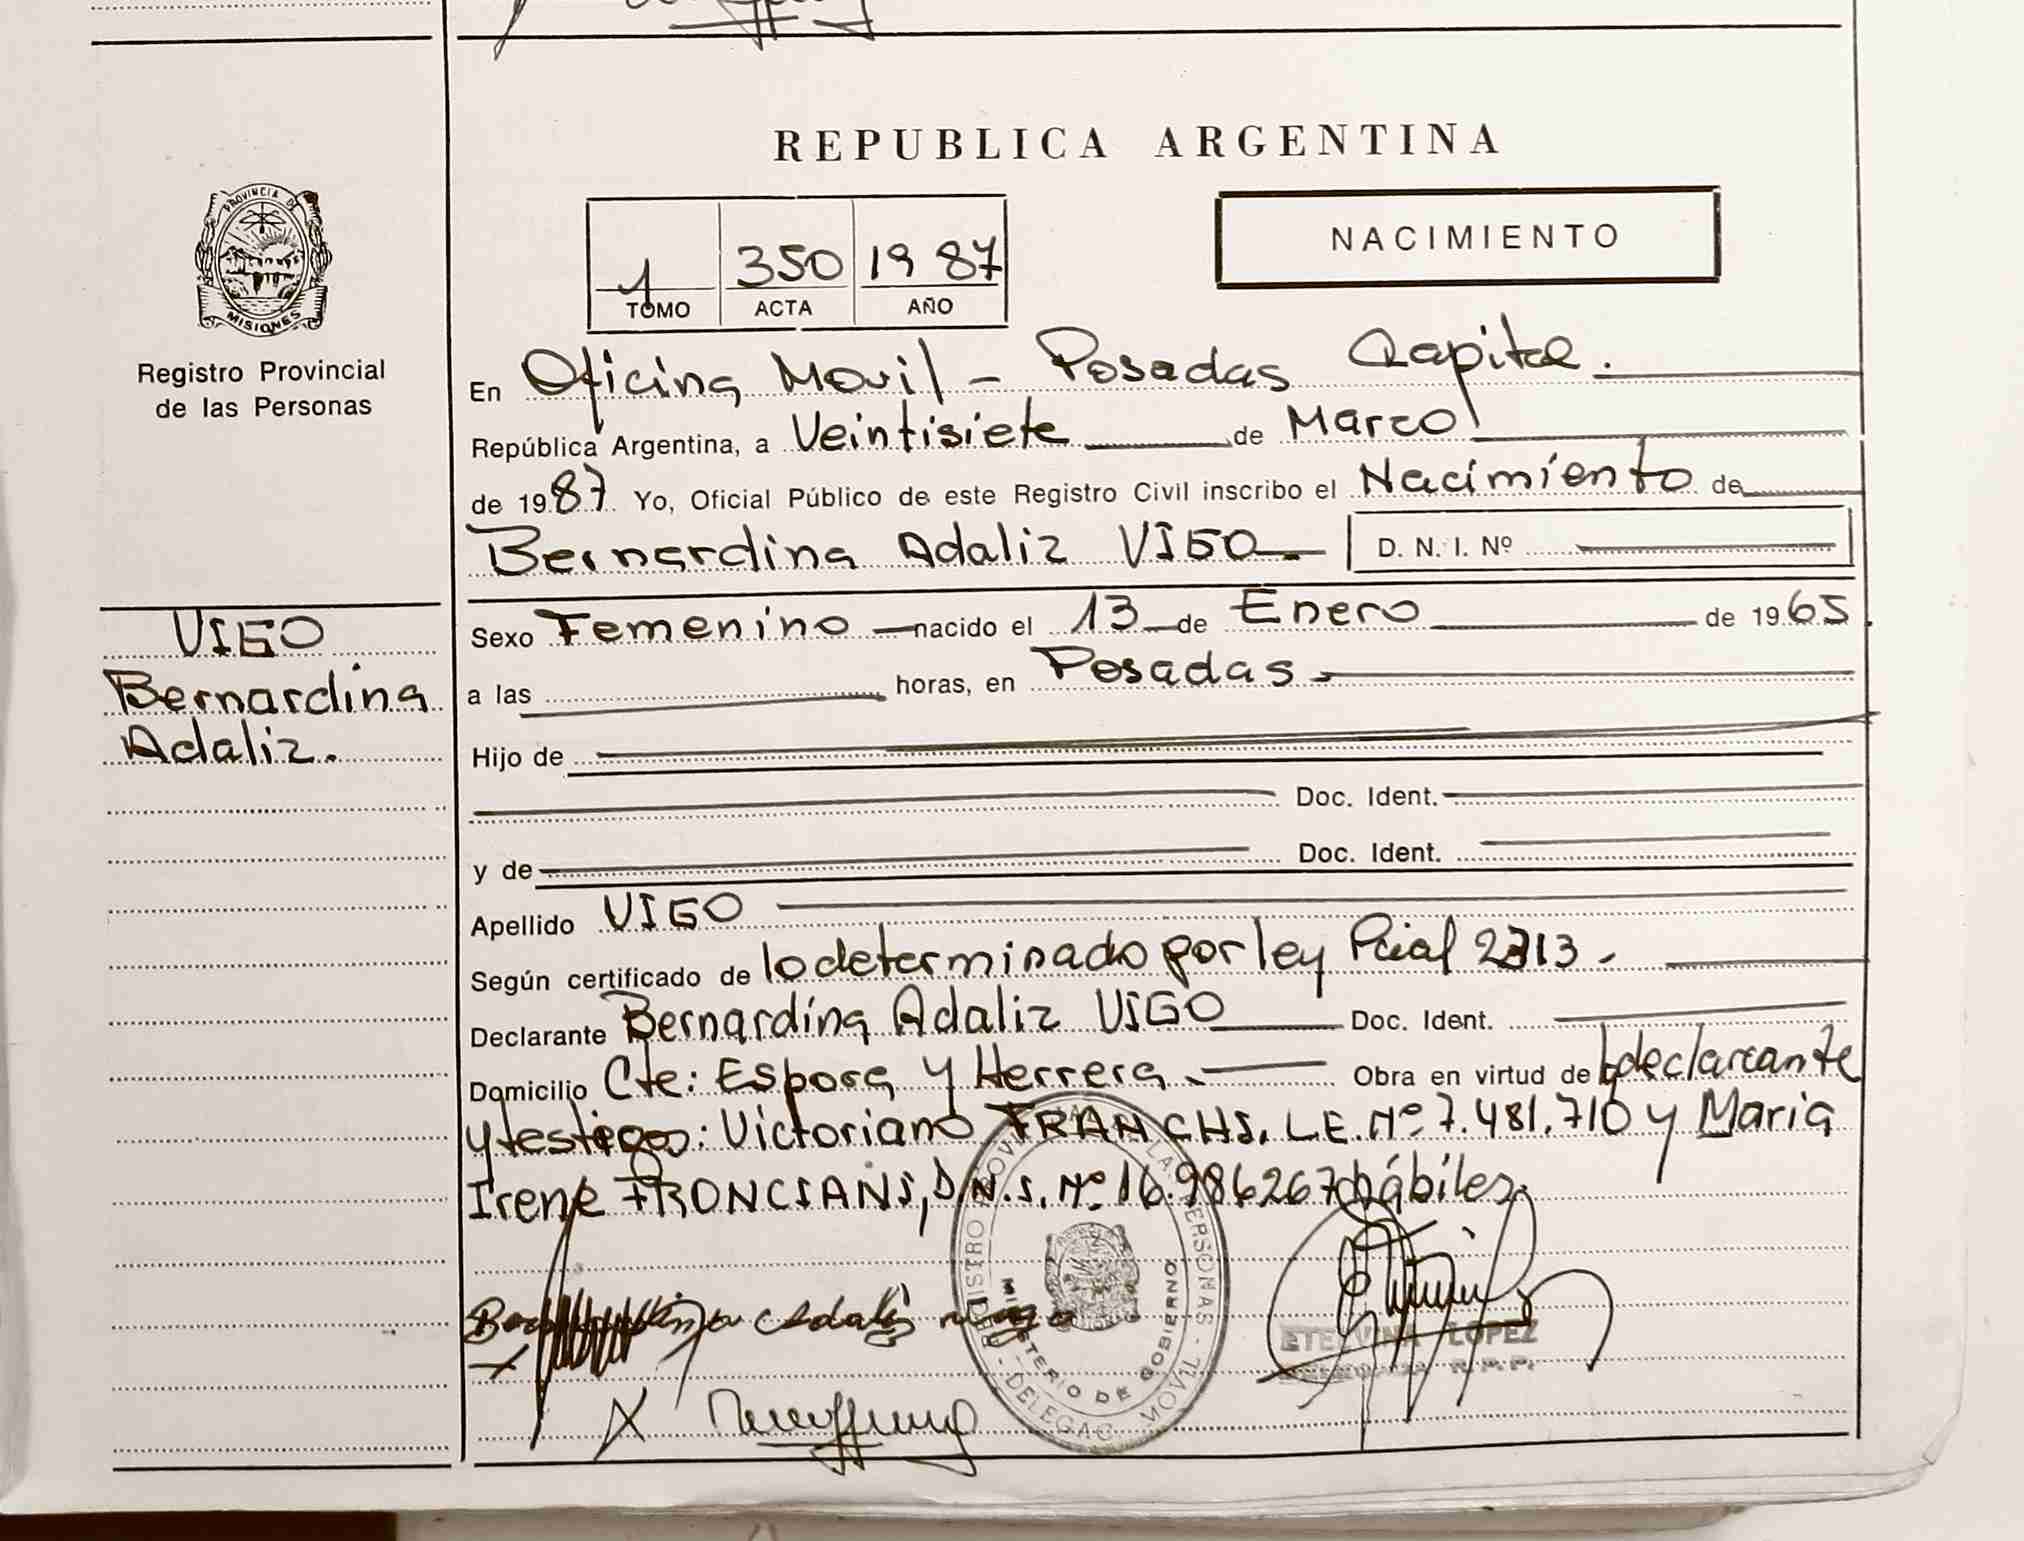 REPUBLICA ARGENTINA
PROVINCIA DE
MISIONES
Registro Provincial
de las Personas
1 350 19 87
TOMO ACTA AÑO
NACIMIENTO
En Oficina Movil - Posadas Capital.
República Argentina, a Veintisiete de Marzo
de 1987 Yo, Oficial Público de este Registro Civil inscribo el Nacimiento de
Bernardina Adaliz VIGO D. N. I. Nº
VIGO
Bernardina
Adaliz.
Sexo Femenino nacido el 13 de Enero de 1965
a las horas, en Posadas
Hijo de
Doc. Ident.
y de Doc. Ident.
Apellido VIGO
Según certificado de lo determinado por ley Pcial 2313.
Declarante Bernardina Adaliz VIGO Doc. Ident.
Domicilio Cte: Espora y Herrera. Obra en virtud de declarante
y testigos: Victoriano L.E. Nº 7.481.710 y Maria
Irene D.N.I. Nº 16.986267 hábiles.
REGISTRO PROVINCIAL DE LAS PERSONAS - DELEGAC. MOVIL -
MINISTERIO DE GOBIERNO
ETELVINA LOPEZ
R.P.P.